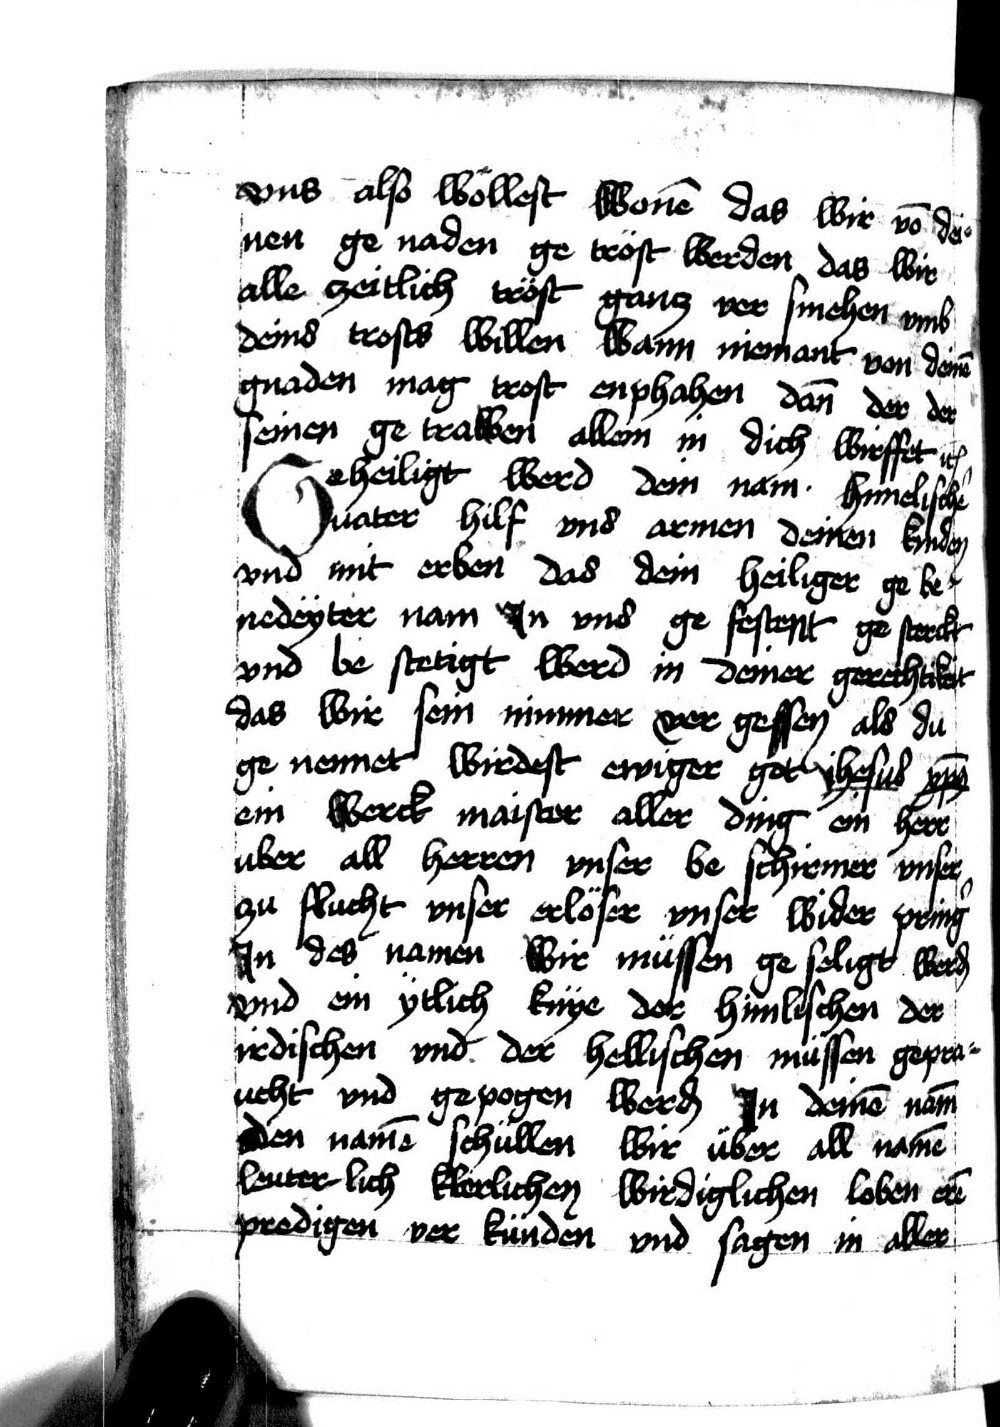 vns also wöllest wonē das wir vō dei-
nen ge naden ge tröst werden das wir
alle zeitlich tröst gantz ver smehen vmb
deins trosts willen wann niemant von deinē
gnaden mag trost enphahen dan̄ der der
seinen ge trawen allein in dich wirffet
Geheiligt werd dein nam. himelischē
vater hilf vns armen deinen kinden
vnd mit erben das dein heiliger ge be-
nedeyter nam In vns ge festent ge sterckt
vnd be stetigt werd in deiner gerechtikeit
das wir sein nimmer ver gessen als du
ge nennet wirdest ewiger got ihesus xp̄s
ein werck maister aller ding ein herr
uber all herren vnser be schirmer vnser
zu flucht vnser erlöser vnser wider pring̾
In des namen wir müssen ge seligt werd̾
vnd ein ytlich knye der himlischen der
irdischen vnd der hellischen müssen gepra-
ucht vnd gepogen werd̾ In deinē nam̄
den namē schüllen wir über all namē
leuter-lich klerlichen wirdiglichen loben erē
predigen ver künden vnd sagen in aller